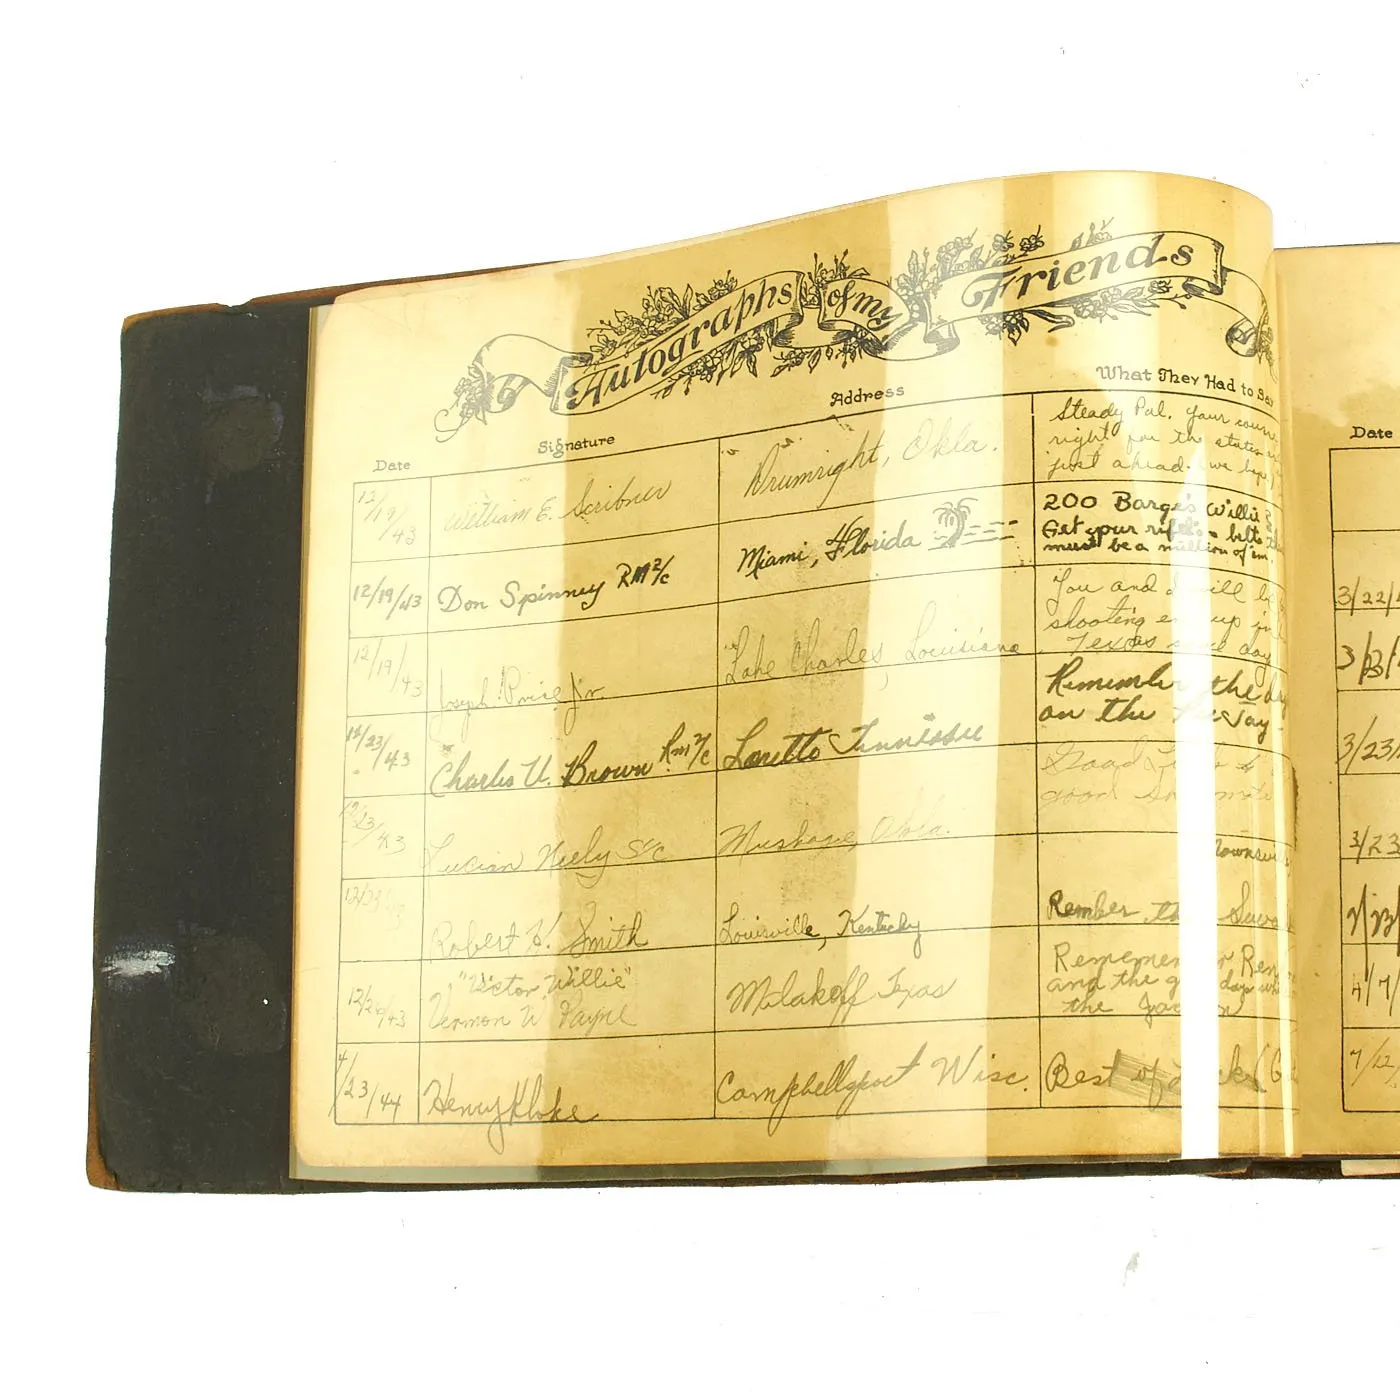 Autographs of my Friends
Date Signature Address What They Had to Say
12/19/43 William E. Scribner Drumright, Okla. Steady Pal. Your
right for the states
just ahead. we hope
12/19/43 Don Spinney RM2/c Miami, Florida 200 Barges Willie
Get your belts
must be a million of em.
12/19/43 Joseph Price Jr. Lake Charles, Louisiana You and I will b
shooting em up in
Texas some day
12/23/43 Charles V. Brown Rm2/c Loretto Tennessee Remember the day
on the Jay
12/23/43 Lucian Neely S2/c Muskogee, Okla. Good Luck to
good
12/23/43 Robert H. Smith Louisville, Kentucky Townsvi
Rember the
12/26/43 "Victor Willie"
Vernon W Payne Malakoff Texas Rememender Ren
and the g days
the
4/23/44 Henry Kloke Campbellsport Wisc. Best of Lucks
Date
3/22/
3/23/
3/23/
3/23
4/7/
7/12/